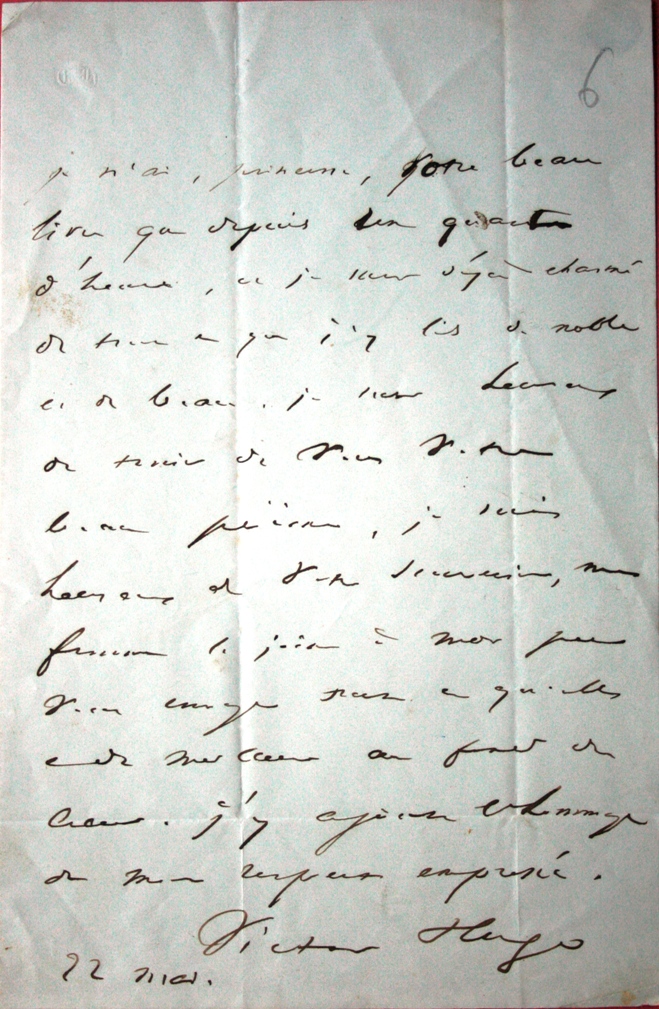 6
je n'ai, princesse, votre beau
livre que depuis un quart
d'heure, et je suis déjà charmé
de tout ce que j'y lis de noble
et de beau. je suis heureux
de tenir de vous votre
beau poëme, je suis
heureux de votre souvenir, ma
femme se joint à moi pour
vous envoyer tout ce qu'elle
a de meilleur au fond du
cœur. j'y ajoute l'hommage
de mon respect empressé.
Victor Hugo
22 mai.